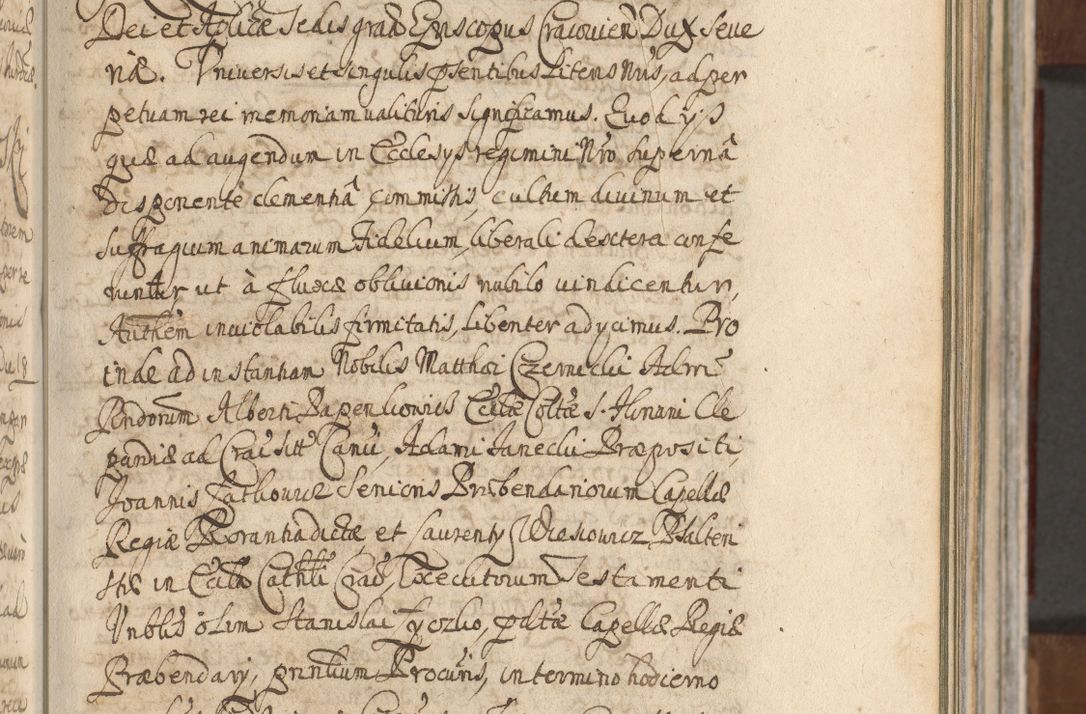 Dei et Aplicæ Sedis graā Episcopus Cracovieñ Dux Seve
riæ. Universis et singulis pñtibus Literis Nris, ad per
petuam rei memoriam valituris significamus. Quod ijs
quæ ad augendum in Ecclesijs regimini Nro supernâ
disponente clementiâ commissis, cultum divinum et
suffragium animarum Fidelium, liberali dextera confe
runtur ut à fluxæ oblivionis nubilo vindicentur,
Authem inviolabilis firmitatis, libenter adijcimus. Pro
inde ad instantiam Nobilis Matthæi Czernecki Adm
Rndorum Alberti Papenkovics Eccliæ Coltæ S. Floriani Cle
pardiæ ad Cra: sitt: Canci, Adami Janecki Præpositi,
Joannis Fatkovicz Senioris Præbendariorum Capellæ
Regiæ Rorantia dictæ et Laurentij Wieskovicz Psalteri
stæ in Eccla Cathli Crac, Executorum Testamenti
Vnblis olim Stanislai Fyczko, pdtæ Capellæ Regiæ
Præbendarij, prnntium Procuris, in termino hodierno